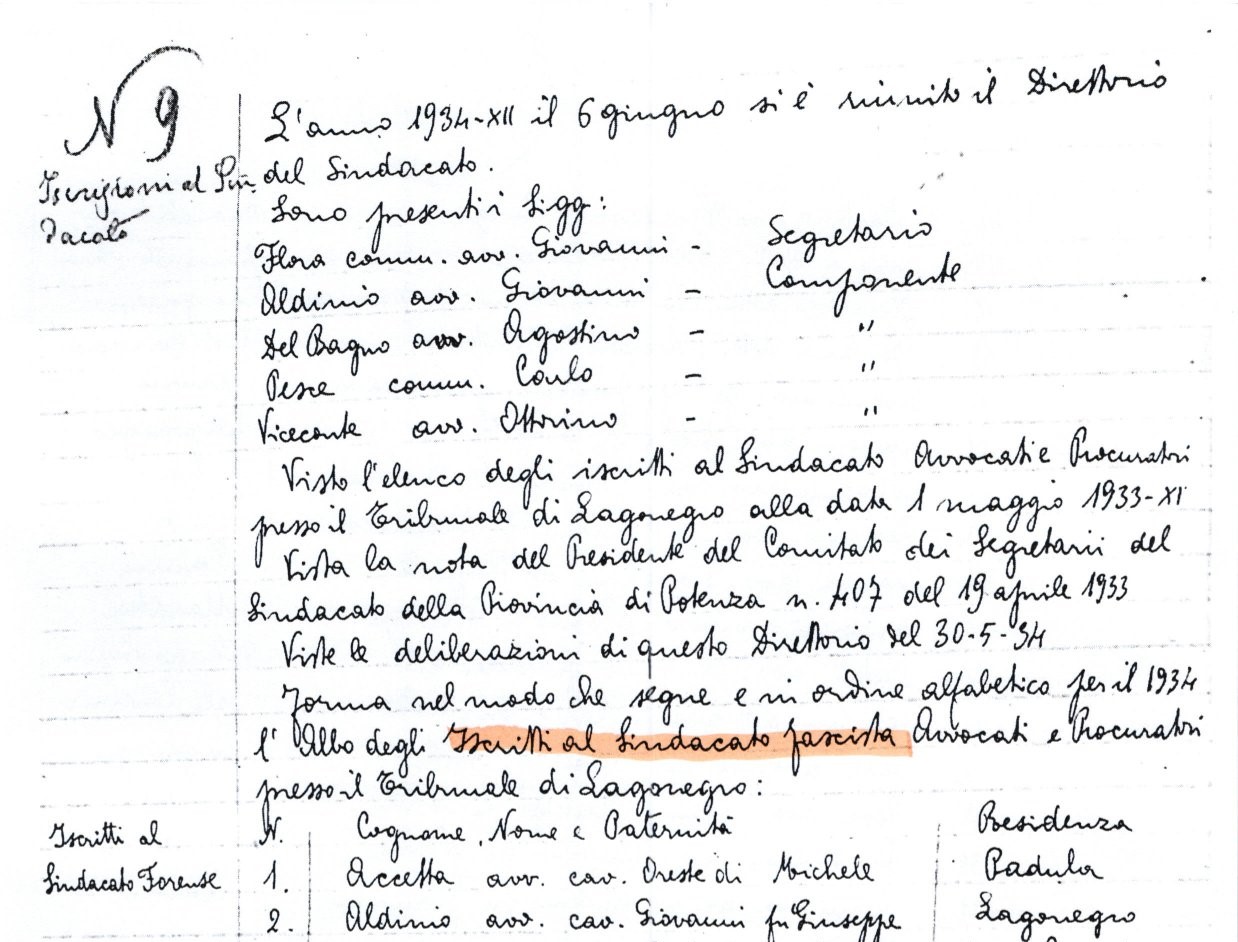 N 9
Iscrizioni al Sin-
dacato
L'anno 1934-XII il 6 giugno si è riunito il Direttorio
del Sindacato.
Sono presenti i Sigg:
Flora comm. avv. Giovanni - Segretario
Aldinio avv. Giovanni - Componente
Del Bagno avv. Agostino - "
Pesce comm. Carlo - "
Viceconte avv. Ottorino - "
Visto l'elenco degli iscritti al Sindacato Avvocati e Procuratori
presso il Tribunale di Lagonegro alla data 1 maggio 1933-XI
Vista la nota del Presidente del Comitato dei Segretarii del
Sindacato della Provincia di Potenza n. 407 del 19 aprile 1933
Viste le deliberazioni di questo Direttorio del 30-5-34
Forma nel modo che segue e in ordine alfabetico per il 1934
l'Albo degli Iscritti al Sindacato fascista Avvocati e Procuratori
presso il Tribunale di Lagonegro:
Iscritti al
Sindacato Forense
N. Cognome, Nome e Paternità Residenza
1. Accetta avv. cav. Oreste di Michele Padula
2. Aldinio avv. cav. Giovanni fu Giuseppe Lagonegro